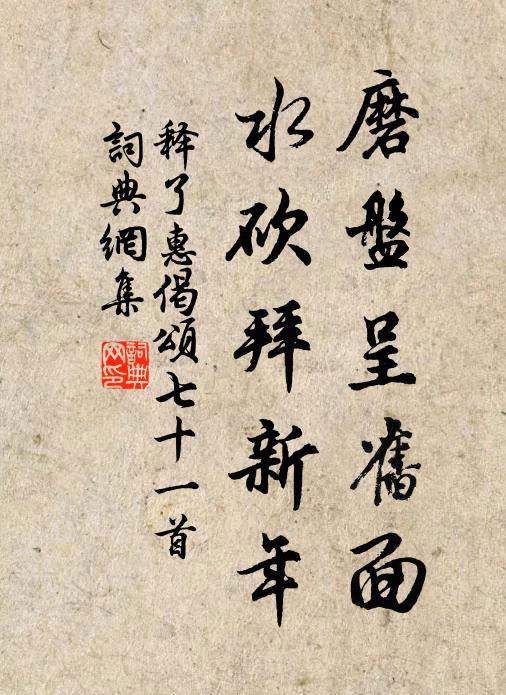 磨盤呈舊面
水砍拜新年
释了惠偈頌七十一首
詞典網集
詞典网印